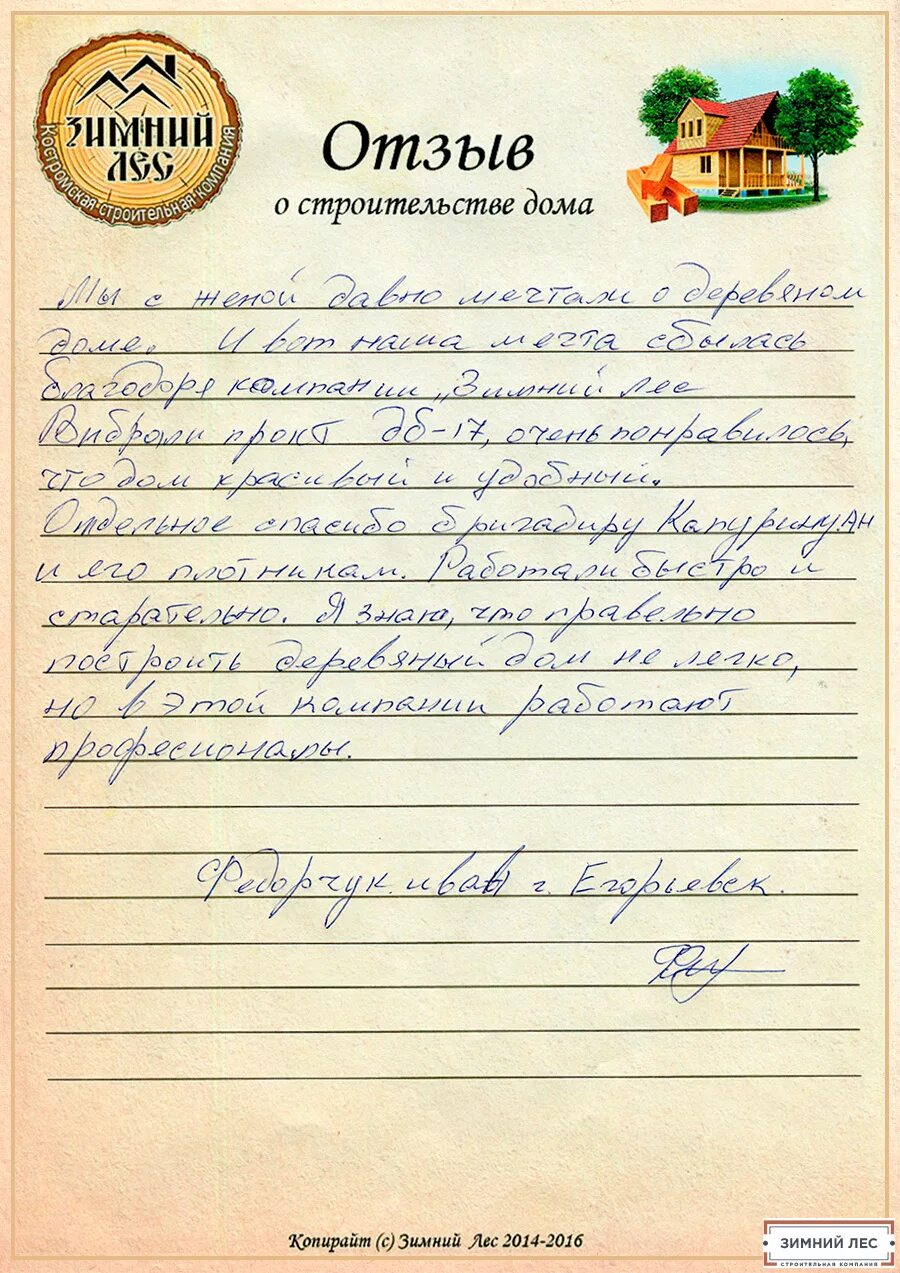 ЗИМНИЙ
ЛЕС
Костромская строительная компания
Отзыв
о строительстве дома
Мы с женой давно мечтали о деревяном
доме. И вот наша мечта сбылась
благодоря компании „Зимний лес
Выбрали прокт ДБ-17, очень понравилось,
что дом красивый и удобный.
Отдельное спасибо бригадиру Капурину.Ан
и его плотникам. Работали быстро и
старательно. Я знаю, что правельно
построить деревяный дом не легко,
но в этой компании работают
професионалы.
Федорчук иван г. Егорьевск.
Копирайт (с) Зимний Лес 2014-2016
ЗИМНИЙ ЛЕС
СТРОИТЕЛЬНАЯ КОМПАНИЯ